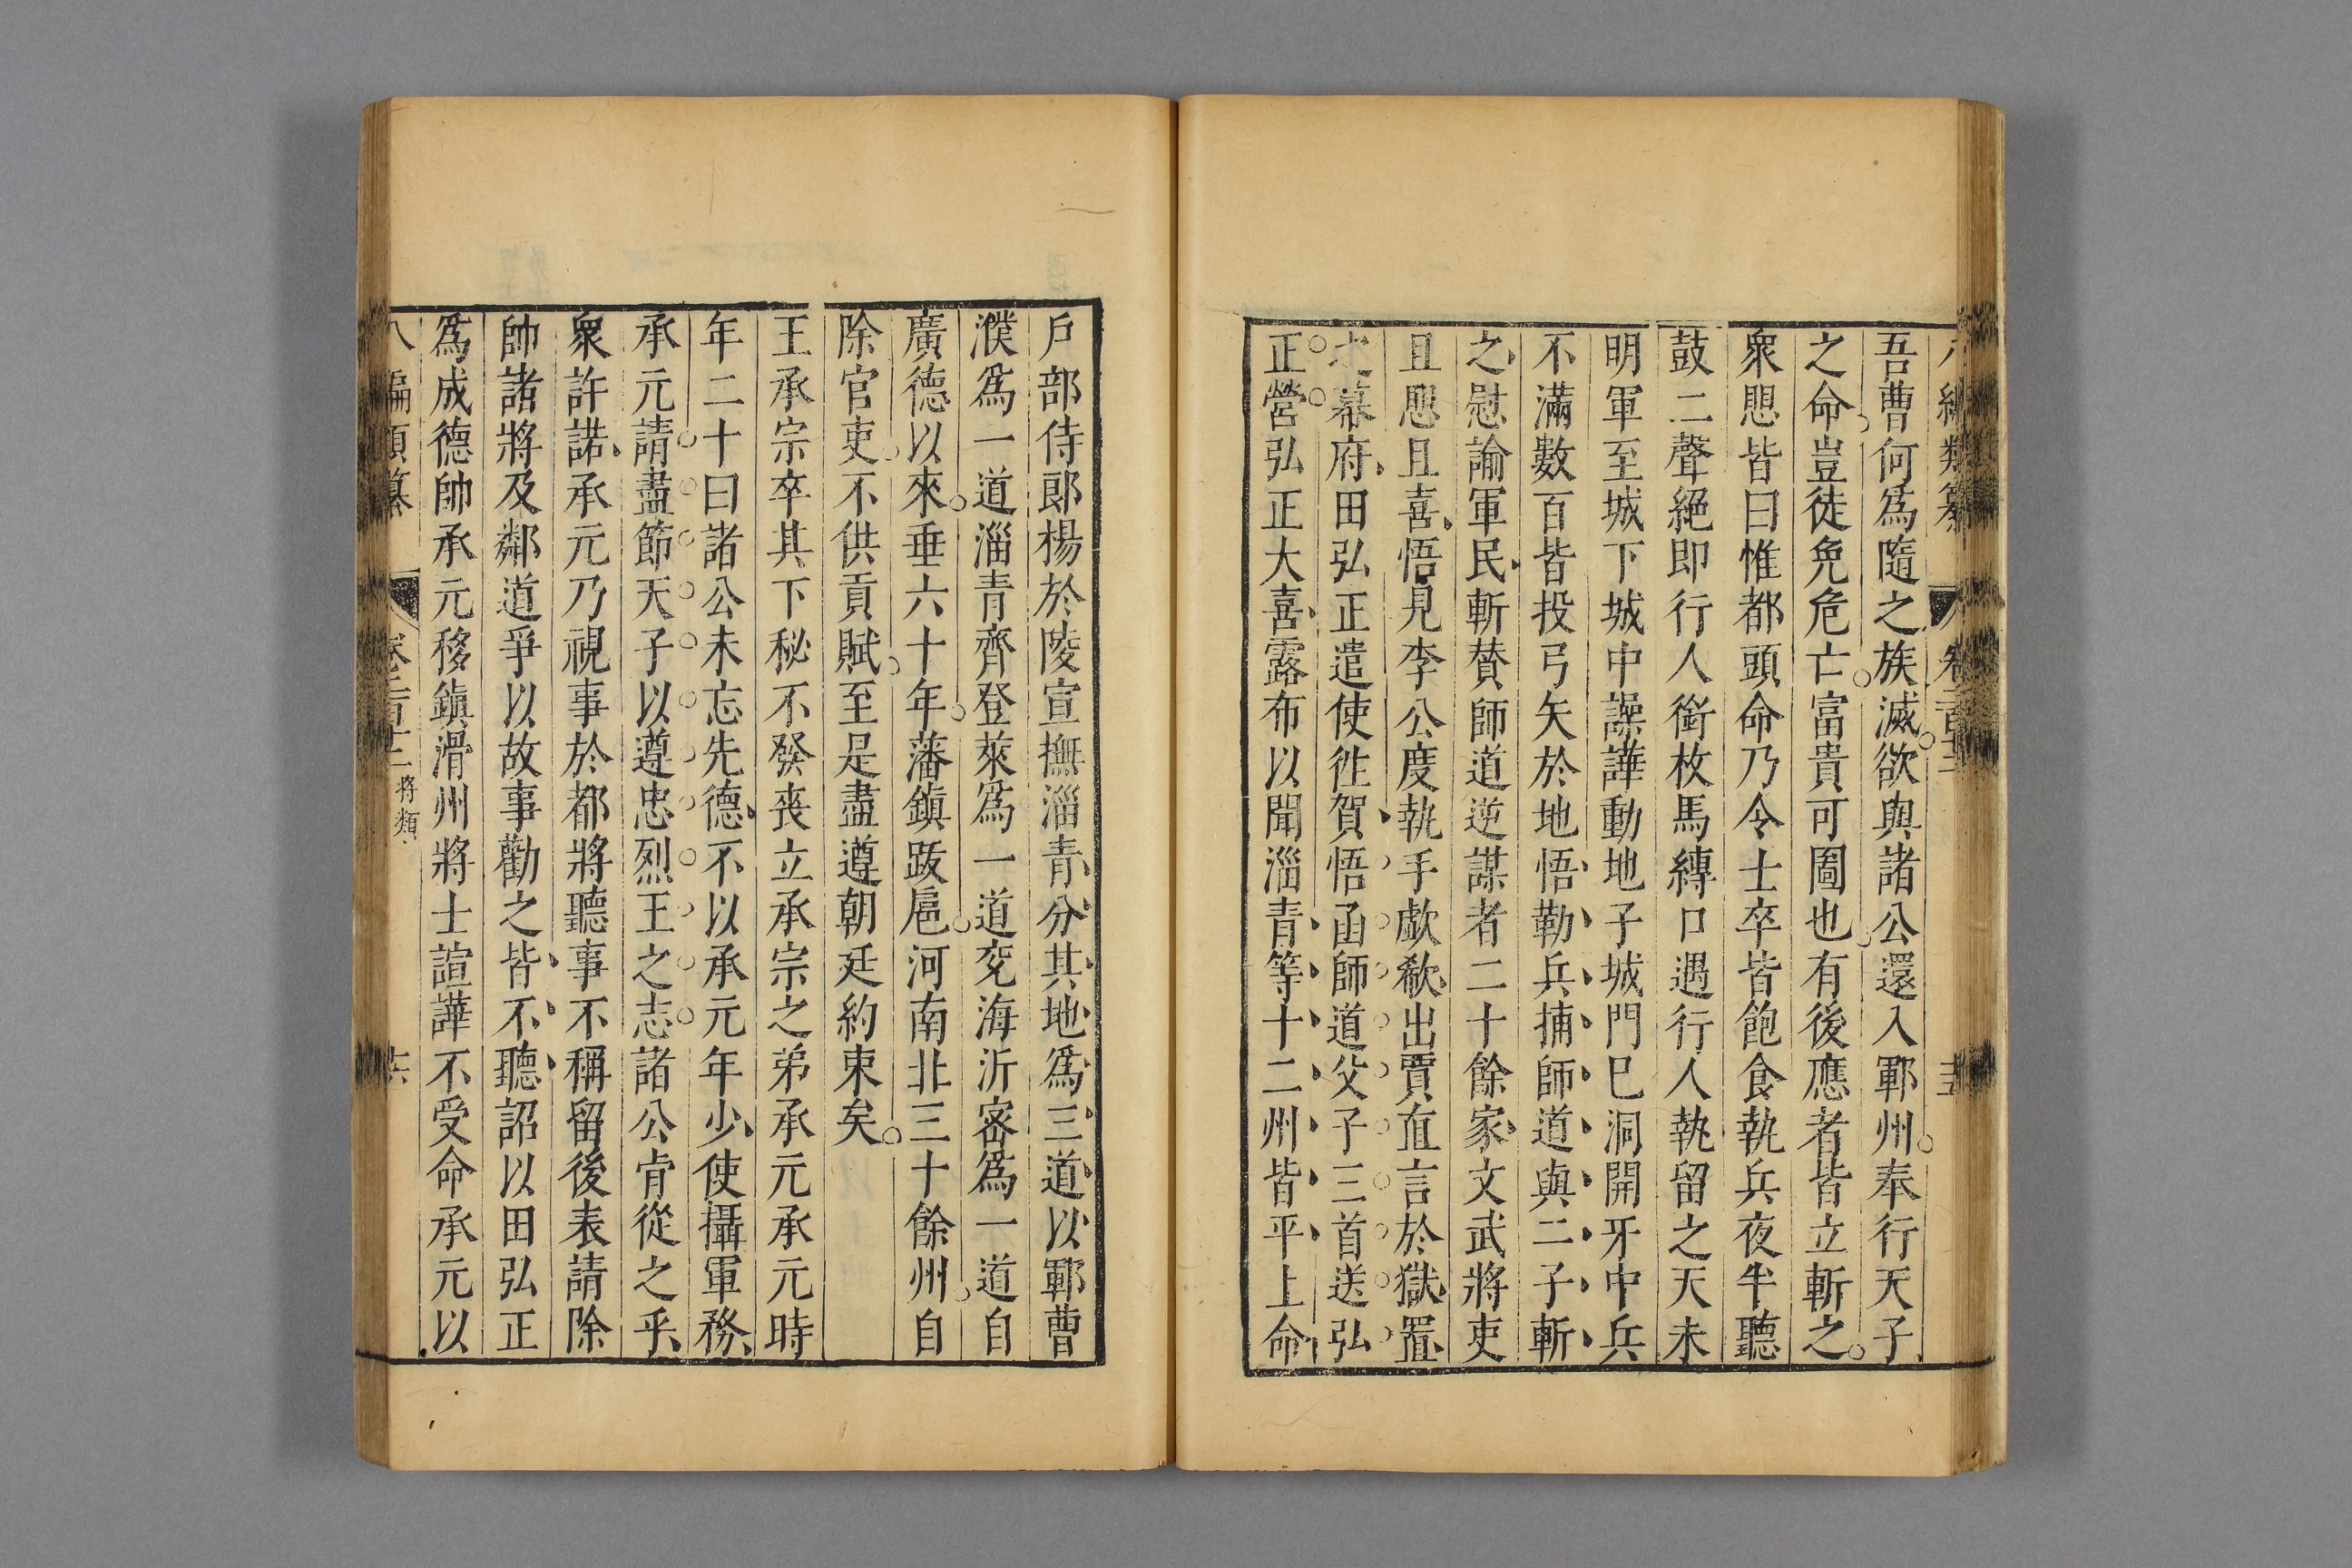 吾曹何爲隨之族滅欲與諸公還入鄆州奉行天子
之命豈徒免危亡富貴可圖也有後應者皆立斬之
衆愳皆曰惟都頭命乃令士卒皆飽食執兵夜半聽
鼓二聲絕即行人銜枚馬縛口遇行人執留之天未
明軍至城下城中譟譁動地子城門已洞開牙中兵
不滿數百皆投弓矢於地悟勒兵捕師道與二子斬
之慰諭軍民斬贊師道逆謀者二十餘家文武將吏
且愳且喜悟見李公度執手歔欷出賈直言於獄置
之幕府田弘正遣使徃賀悟函師道父子三首送弘
正營弘正大喜露布以聞淄青等十二州皆平上命
戶部侍郎楊於陵宣撫淄青分其地爲三道以鄆曹
濮爲一道淄青齊登萊爲一道兗海沂密爲一道自
廣德以來垂六十年藩鎮跋扈河南北三十餘州自
除官吏不供貢賦至是盡遵朝廷約束矣
王承宗卒其下秘不發喪立承宗之弟承元承元時
年二十曰諸公未忘先德不以承元年少使攝軍務
承元請盡節天子以遵忠烈王之志諸公肯從之乎
衆許諾承元乃視事於都將聽事不稱留後表請除
帥諸將及鄰道爭以故事勸之皆不聽詔以田弘正
爲成德帥承元移鎮滑州將士諠譁不受命承元以
八編類纂 將類